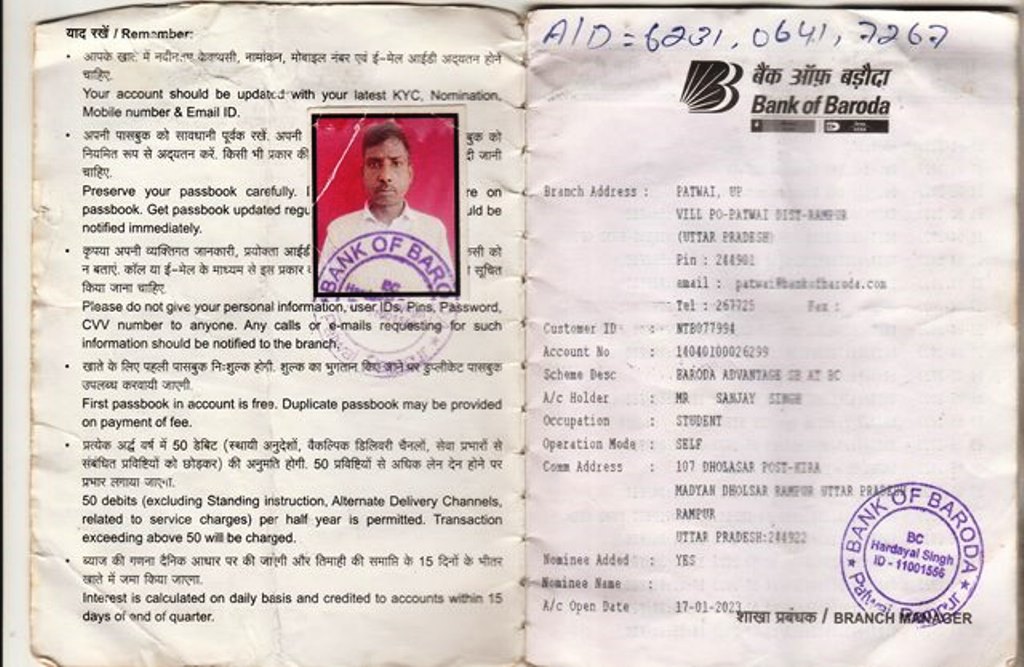 याद रखें / Remember:
• आपके खाते में नवीनतम केवायसी, नामांकन, मोबाइल नंबर एवं ई-मेल आईडी अद्यतन होने
चाहिए.
Your account should be updated with your latest KYC, Nomination,
Mobile number & Email ID.
• अपनी पासबुक को सावधानी पूर्वक रखें. अपनी बुक को
नियमित रूप से अद्यतन करें. किसी भी प्रकार की दी जानी
चाहिए.
Preserve your passbook carefully. re on
passbook. Get passbook updated regu uld be
notified immediately.
• कृपया अपनी व्यक्तिगत जानकारी, प्रयोक्ता आईडी सी को
न बताएं. कॉल या ई-मेल के माध्यम से इस प्रकार सूचित
किया जाना चाहिए.
Please do not give your personal information, user IDs, Pins, Password,
CVV number to anyone. Any calls or e-mails requesting for such
information should be notified to the branch.
• खाते के लिए पहली पासबुक निःशुल्क होगी. शुल्क का भुगतान किए जाने पर डुप्लीकेट पासबुक
उपलब्ध करवायी जाएगी.
First passbook in account is free. Duplicate passbook may be provided
on payment of fee.
• प्रत्येक अर्द्ध वर्ष में 50 डेबिट (स्थायी अनुदेशों, वैकल्पिक डिलिवरी चैनलों, सेवा प्रभारों से
संबंधित प्रविष्टियों को छोड़कर) की अनुमति होगी. 50 प्रविष्टियों से अधिक लेन देन होने पर
प्रभार लगाया जाएगा.
50 debits (excluding Standing instruction, Alternate Delivery Channels,
related to service charges) per half year is permitted. Transaction
exceeding above 50 will be charged.
• ब्याज की गणना दैनिक आधार पर की जाएगी और तिमाही की समाप्ति के 15 दिनों के भीतर
खाते में जमा किया जाएगा.
Interest is calculated on daily basis and credited to accounts within 15
days of end of quarter.
BANK OF BARO
BC
A/D = 6231, 0641, 7267
बैंक ऑफ़ बड़ौदा
Bank of Baroda
Branch Address : PATWAI, UP
VILL PO-PATWAI DIST-RAMPUR
(UTTAR PRADESH)
Pin : 244901
email : patwai@bankofbaroda.com
Tel : 267725 Fax :
Customer ID : NTB077994
Account No : 14040100026299
Scheme Desc : BARODA ADVANTAGE SB AT BC
A/c Holder : MR SANJAY SINGH
Occupation : STUDENT
Operation Mode : SELF
Comm Address : 107 DHOLASAR POST-KIRA
MADYAN DHOLSAR RAMPUR UTTAR PRADESH
RAMPUR
UTTAR PRADESH:244922
Nominee Added : YES
Nominee Name :
A/c Open Date : 17-01-2023
BANK OF BARODA
BC
Hardayal Singh
ID - 11001556
शाखा प्रबंधक / BRANCH MANAGER